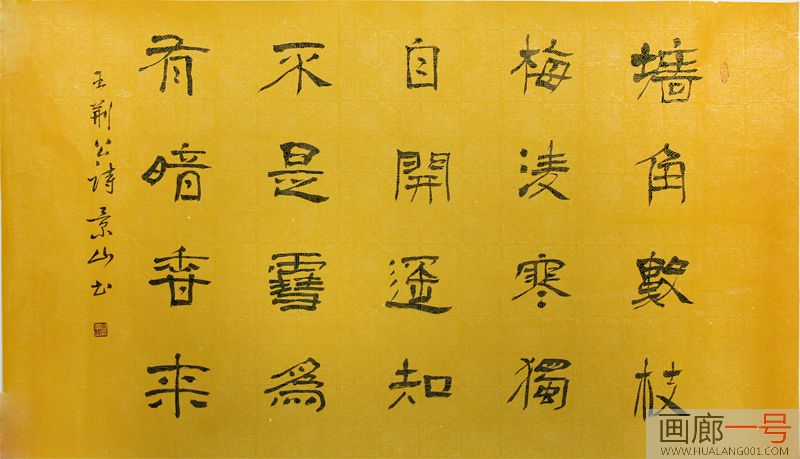 墻角數枝
梅淩寒獨
自開遥知
不是雪為
有暗香来
王荆公詩景山书
画廊一号
WWW.HUALANG001.COM